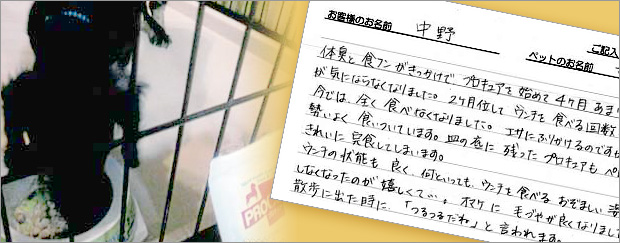 お客様のお名前 中野
ご記入
ペットのお名前
体臭と食フンがきっかけで プロキュアを始めて4ケ月 あまり
が気にならなくなりました。2ケ月位して ウンチを食べる回数
今では、全く食べなくなりました。エサにふりかけるのですが
勢いよく食いついてします。皿の底に残ったプロキュアも ペ
きれいに完食してしまいます。
ウンチの状態も良く、何といっても、ウンチを食べる おぞましい 姿
しなくなったのが嬉しくて…。オマケに 毛づやが良くなりまし
散歩に出た時に、「つるつるだね」と言われます。
PRO